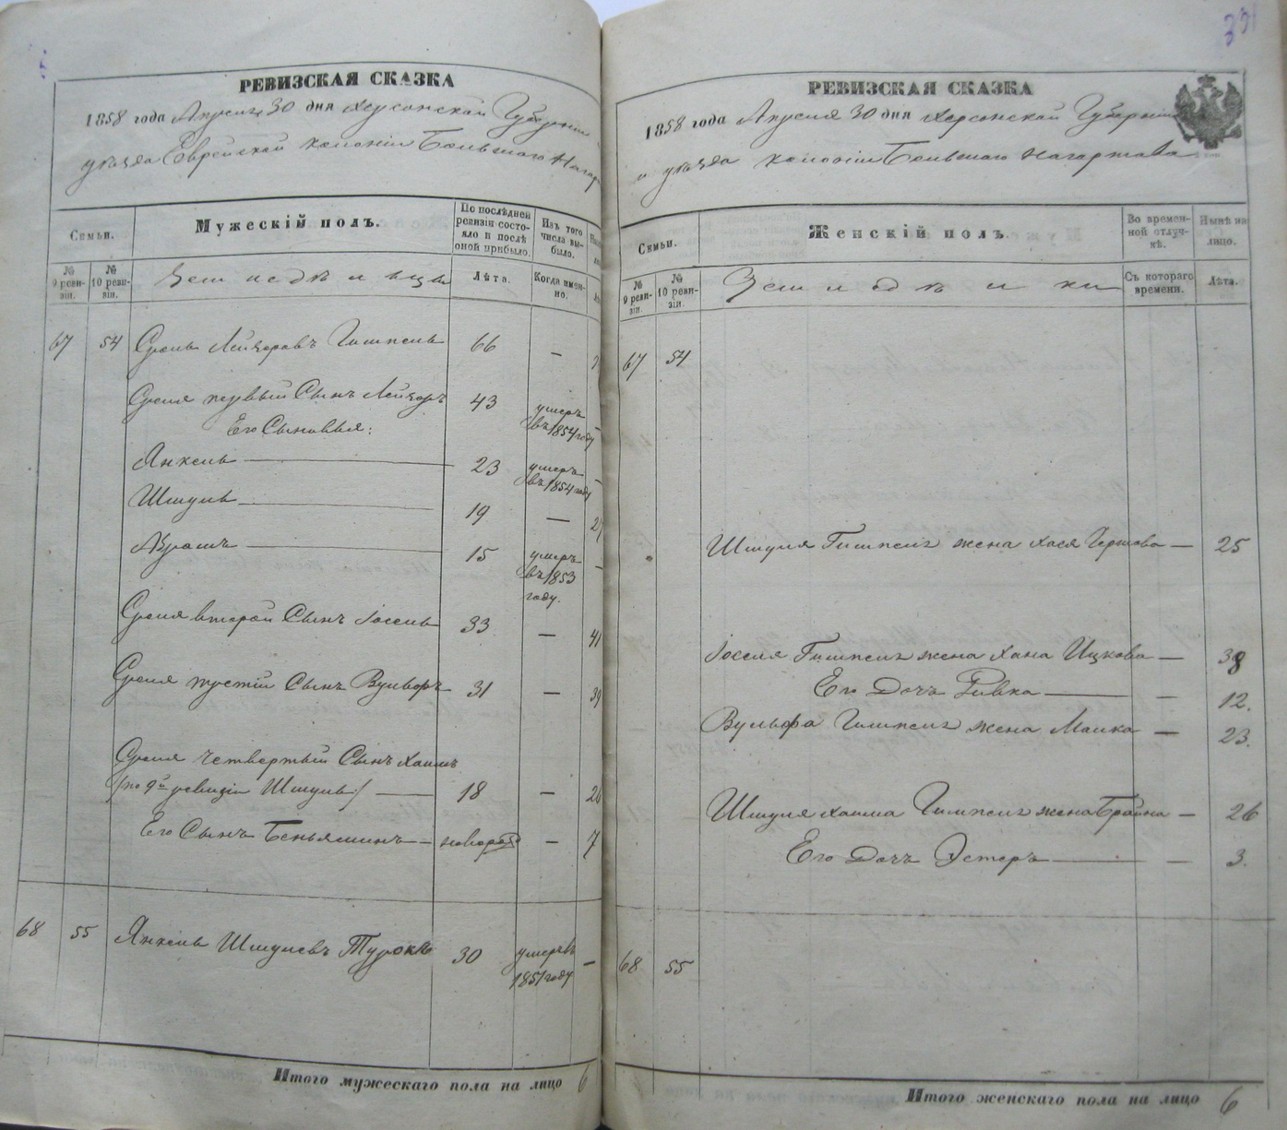 РЕВИЗСКАЯ СКАЗКА
1858 года Апреля 30 дня Херсонской Губернии
уезда Еврейской колонии Большого Нагар
Семьи.
Мужескій полъ.
По послѣдней ревизіи состояло и послѣ оной прибыло.
Изъ того числа выбыло.
№ 9 ревизіи.
№ 10 ревизіи.
Лѣта.
Когда именно.
67 54 Сроль Лейзоровъ Гимпель 66 —
Сроля первый Сынъ Лейзоръ 43 умеръ въ 1854 году
Его Сыновья:
Янкель — 23 умеръ въ 1854 году —
Шмуль — 19 — 27
Абрамъ — 15 умеръ въ 1853 году. —
Сроля второй Сынъ Іосель 33 — 41
Сроля третій Сынъ Вульфъ 31 — 39
Сроля четвертый Сынъ Хаимъ
/по 9й ревизіи Шмуль/ — 18 — 26
Его Сынъ Беньяминъ — новорож — 7
68 55 Янкель Шмулевъ Турокъ 30 умеръ въ 1851 году —
Итого мужескаго пола на лицо 6
РЕВИЗСКАЯ СКАЗКА
1858 года Апреля 30 дня Херсонской Губерніи
и уезда колоніи Большого Нагартова
Семьи.
Женскій полъ.
Во временной отлучкѣ.
Нынѣ на лицо.
№ 9 ревизіи.
№ 10 ревизіи.
Съ котораго времени.
Лѣта.
67 54
Шмуля Гимпель жена Хася Гершова — 25
Іоселя Гимпель жена Хана Ицкова — 38
Его Дочь Ривка — — 12.
Вульфа Гимпель жена Малка — 23.
Шмуля Хаима Гимпель жена Брайна — 26
Его Дочь Эстеръ — — 3.
68 55
Итого женскаго пола на лицо 6